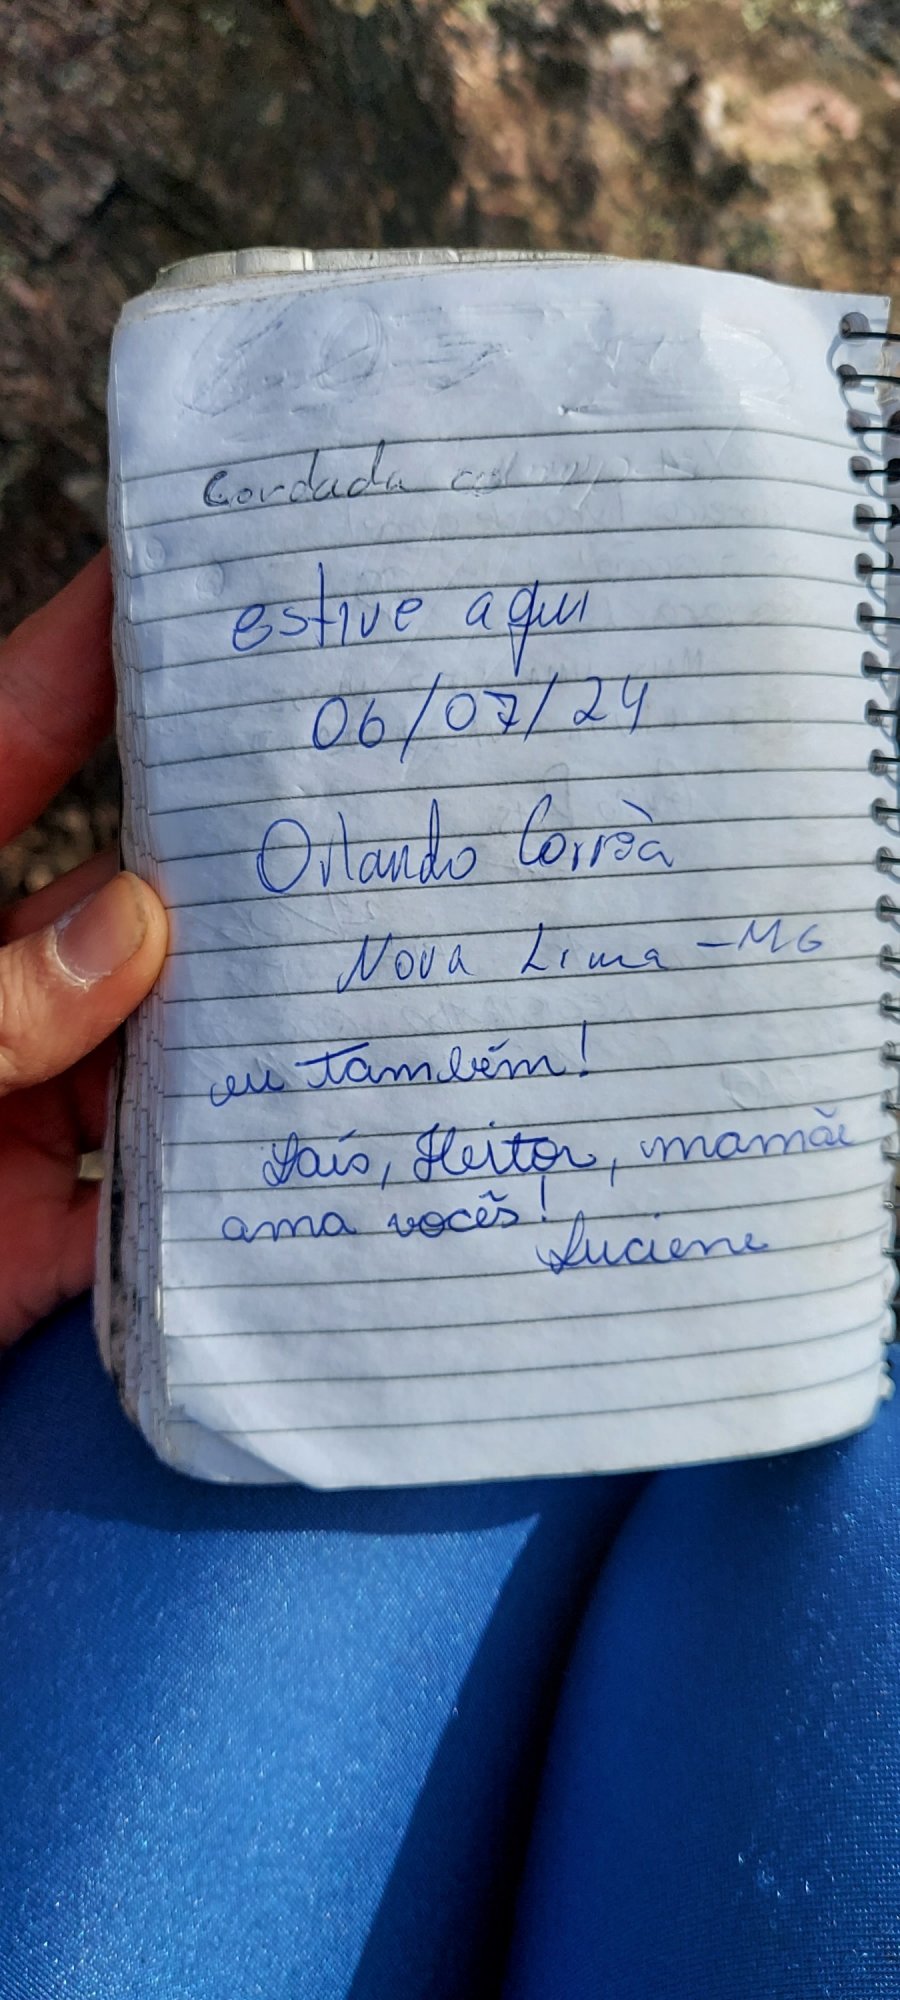 Cordada
estive aqui
06/07/24
Orlando Corrêa
Nova Lima - MG
eu também!
Laís, Heitor, mamãe
ama vocês!
Luciene